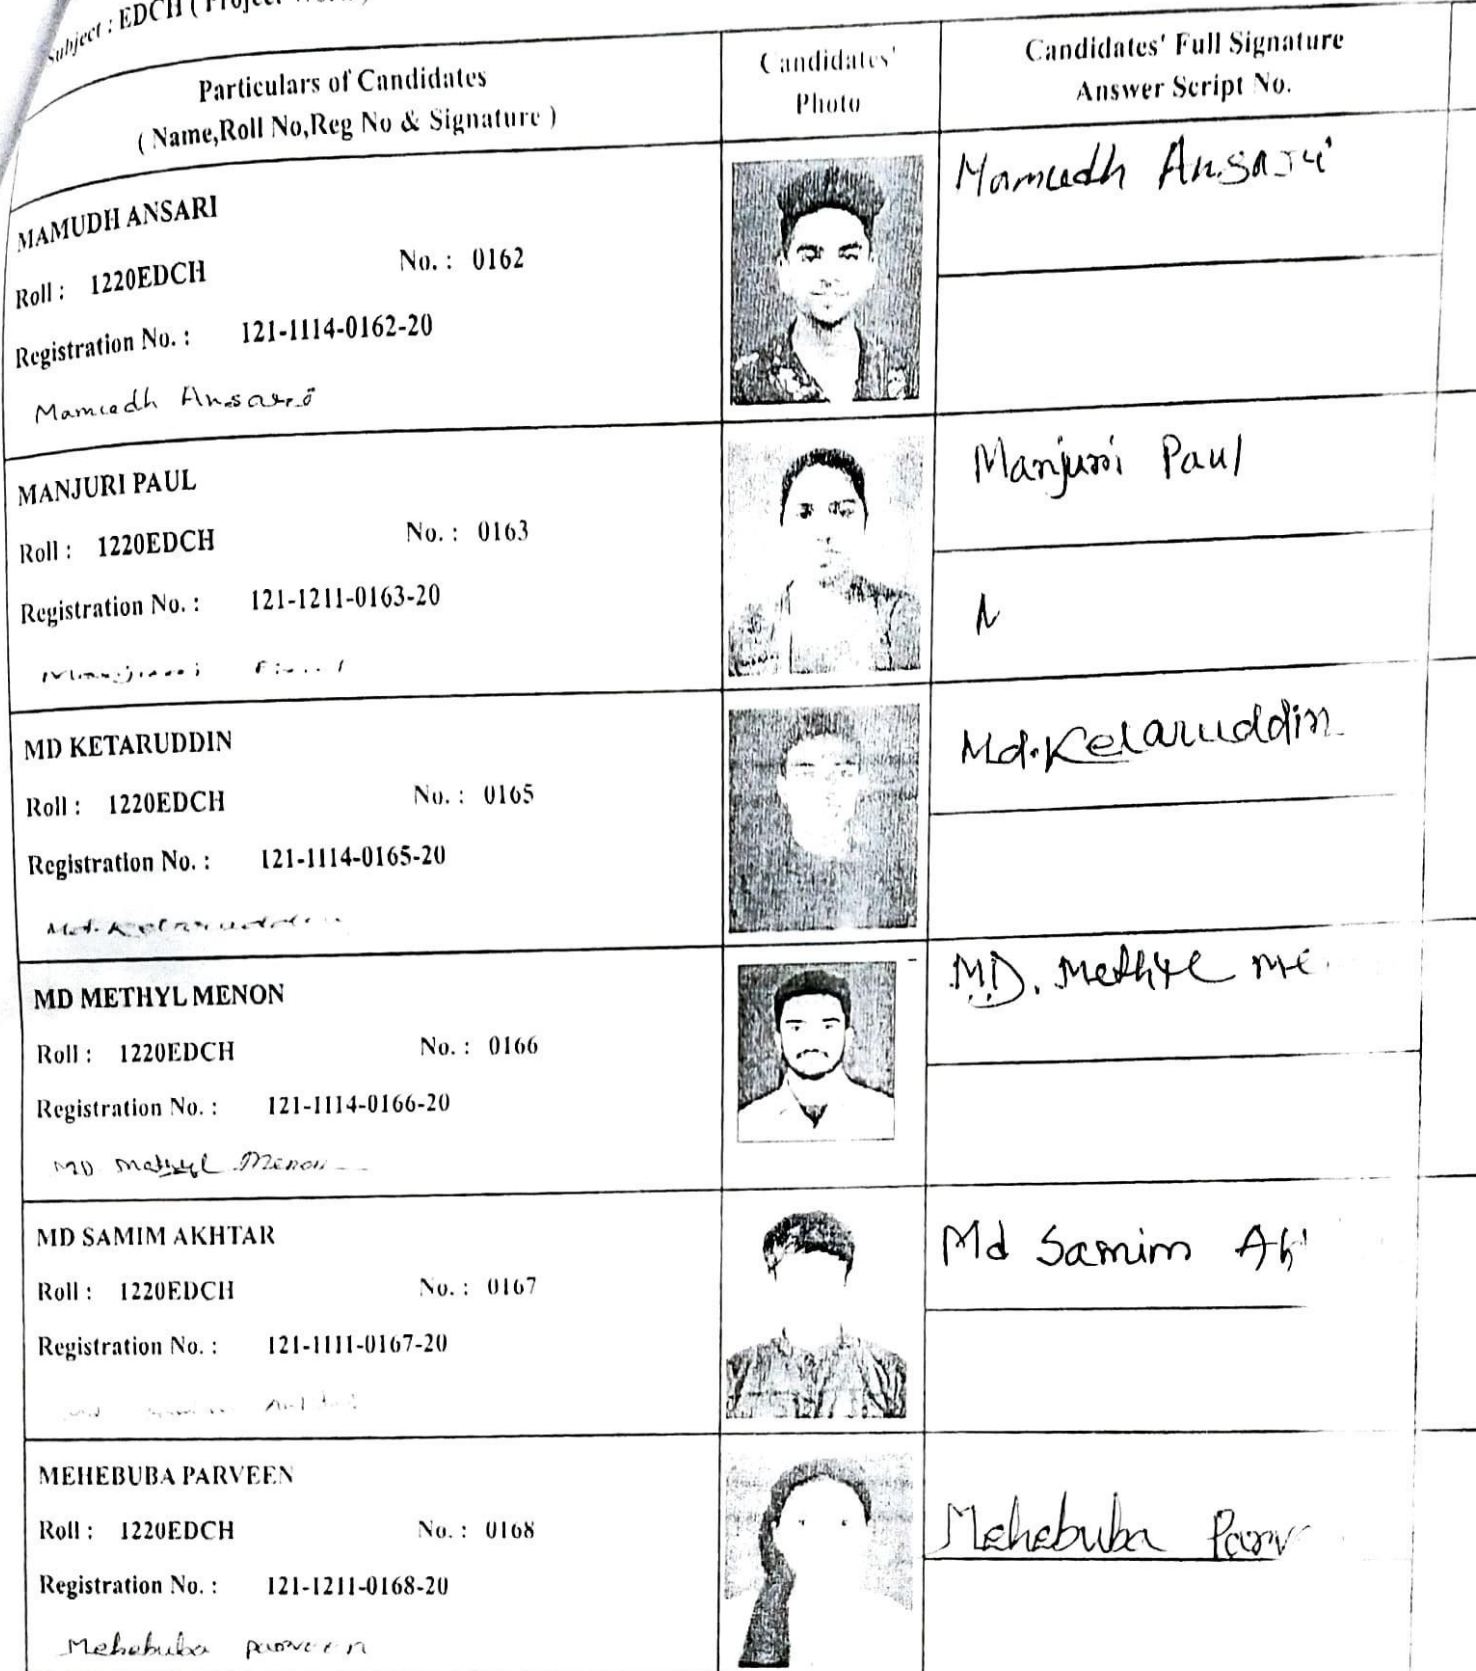 Subject : EDCH ( Project
Particulars of Candidates
( Name,Roll No,Reg No & Signature )
Candidates'
Photo
Candidates' Full Signature
Answer Script No.
MAMUDH ANSARI
Roll : 1220EDCH No. : 0162
Registration No. : 121-1114-0162-20
Mamudh Ansari
Mamudh Ansari
MANJURI PAUL
Roll : 1220EDCH No. : 0163
Registration No. : 121-1211-0163-20
Manjuri Paul
Manjuri Paul
N
MD KETARUDDIN
Roll : 1220EDCH No. : 0165
Registration No. : 121-1114-0165-20
Md. Ketaruddin
Md. Ketaruddin
MD METHYL MENON
Roll : 1220EDCH No. : 0166
Registration No. : 121-1114-0166-20
MD Methyl Menon
MD. Methyl Me
MD SAMIM AKHTAR
Roll : 1220EDCH No. : 0167
Registration No. : 121-1111-0167-20
Md Samim
MEHEBUBA PARVEEN
Roll : 1220EDCH No. : 0168
Registration No. : 121-1211-0168-20
Mehebuba parveen
Mehebuba Parv